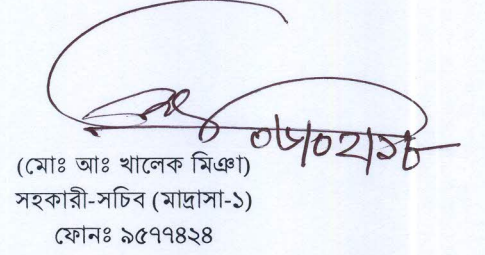 ০৮/০২/১৮
(মোঃ আঃ খালেক মিঞা)
সহকারী-সচিব (মাদ্রাসা-১)
ফোনঃ ৯৫৭৭৪২৪